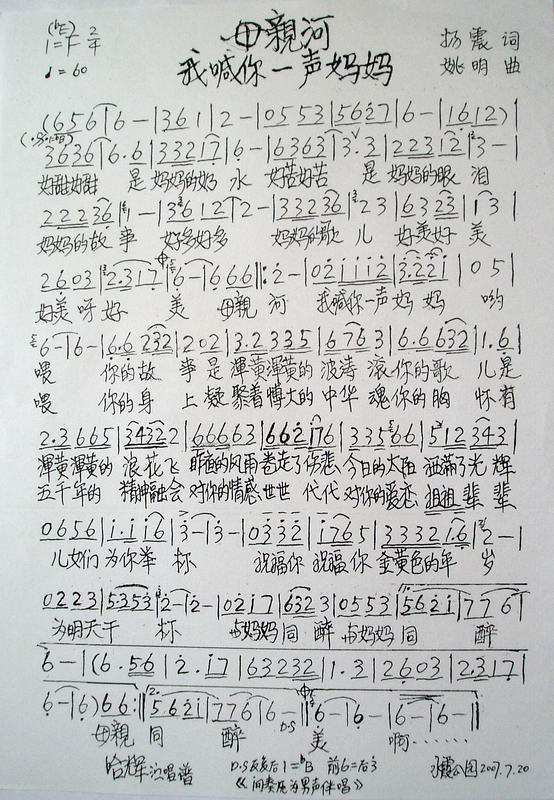 (♭E)
1=F 2/4
♩=60
母親河
我喊你一声妈妈
杨震 词
姚明 曲
(6 5 6 | 6 – | 3 6 1 | 2 – | 0 5 5 3 | 5 6 2 7 | 6 – | 1 6 1 2) |
3 6 3 6 | 6· 6 | 3 3 2 1 7 | 6 – | 6 3 6 3 | 3· 3 | 2 2 3 1 2 | 3 – |
好甜好甜 是 妈妈的奶 水 好苦好苦 是 妈妈的眼 泪
2 2 2 3 6 | 1 – | 3 6 1 2 | 2 – | 3 3 2 3 6 | 2 3 | 6 3 2 3 | 1 3 |
妈妈的故 事 好多好多 妈妈的歌 儿 好美好 美
2 6 0 3 | 2· 3 1 7 | 6 – | 6 6 6 ‖: 2 – | 0 2 1 1 1 2 | 3· 2 2 1 | 0 5 |
好美 呀 好 美 母親 河 我喊你一声 妈 妈 哟
6 – | 6 – | 6· 6 2 3 2 | 2 0 2 | 3· 2 3 3 5 | 6 7 6 3 | 6· 6 6 3 2 | 1· 6 |
喂 你的故 事 是 渾黄渾黄的 波涛 滚 你的歌 儿是
喂 你的身 上 凝聚着博大的 中华 魂 你的胸 怀有
2· 3 6 6 5 | 3 4 3 2 2 | 6 6 6 6 3 | 6 6 2 1 7 6 | 3 3 5 6 6 | 5 1 2 3 4 3 |
渾黄渾黄的 浪花飞 昨夜的风雨卷走了伤悲 今日的太阳 洒满了光 辉
五千年的 精神融会 对你的情感世世 代代 对你的爱恋 祖祖 辈 辈
0 6 5 6 | 1· 1 1 6 | 3 – | 3 – | 0 3 3 2 | 1 7 6 5 | 3 3 3 2 1 6 | 2 – |
儿女们 为你举 杯 祝福你 祝福 你 金黄色的年 岁
0 2 2 3 | 5 3 5 3 | 2 – | 2 – | 0 2 1 7 | 6 3 2 3 | 0 5 5 3 | 5 6 2 1 | 7 7 6 |
为明天干 杯 与妈妈 同 醉 与妈妈 同 醉
6 – | (6· 5 6 | 2· 1 7 | 6 3 2 3 2 | 1· 3 | 2 6 0 3 | 2· 3 1 7 |
6 – | 6 ) 6 6 :‖ 5 6 2 1 | 7 7 6 | 6 – ‖ 6 – | 6 – | 6 – | 6 – ‖
D·S
母親 同 醉 美 啊……
哈辉演唱谱
D·S反复后1=♭B 前6=后3
《间奏处为男声伴唱》
2007.7.20